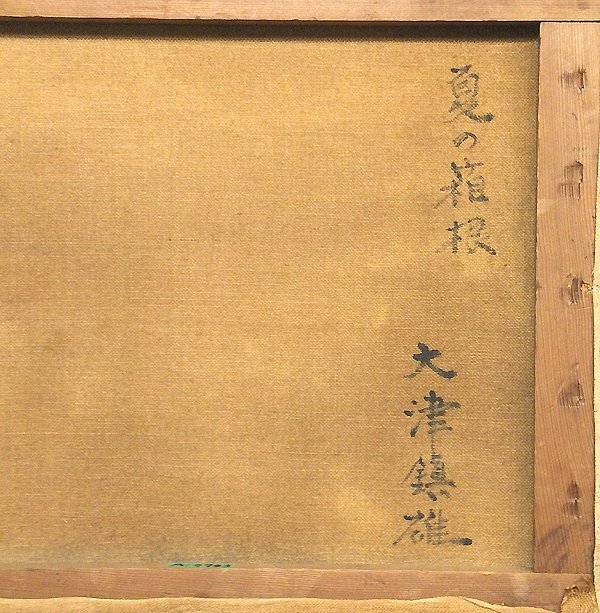 夏の箱根
大津鎮雄